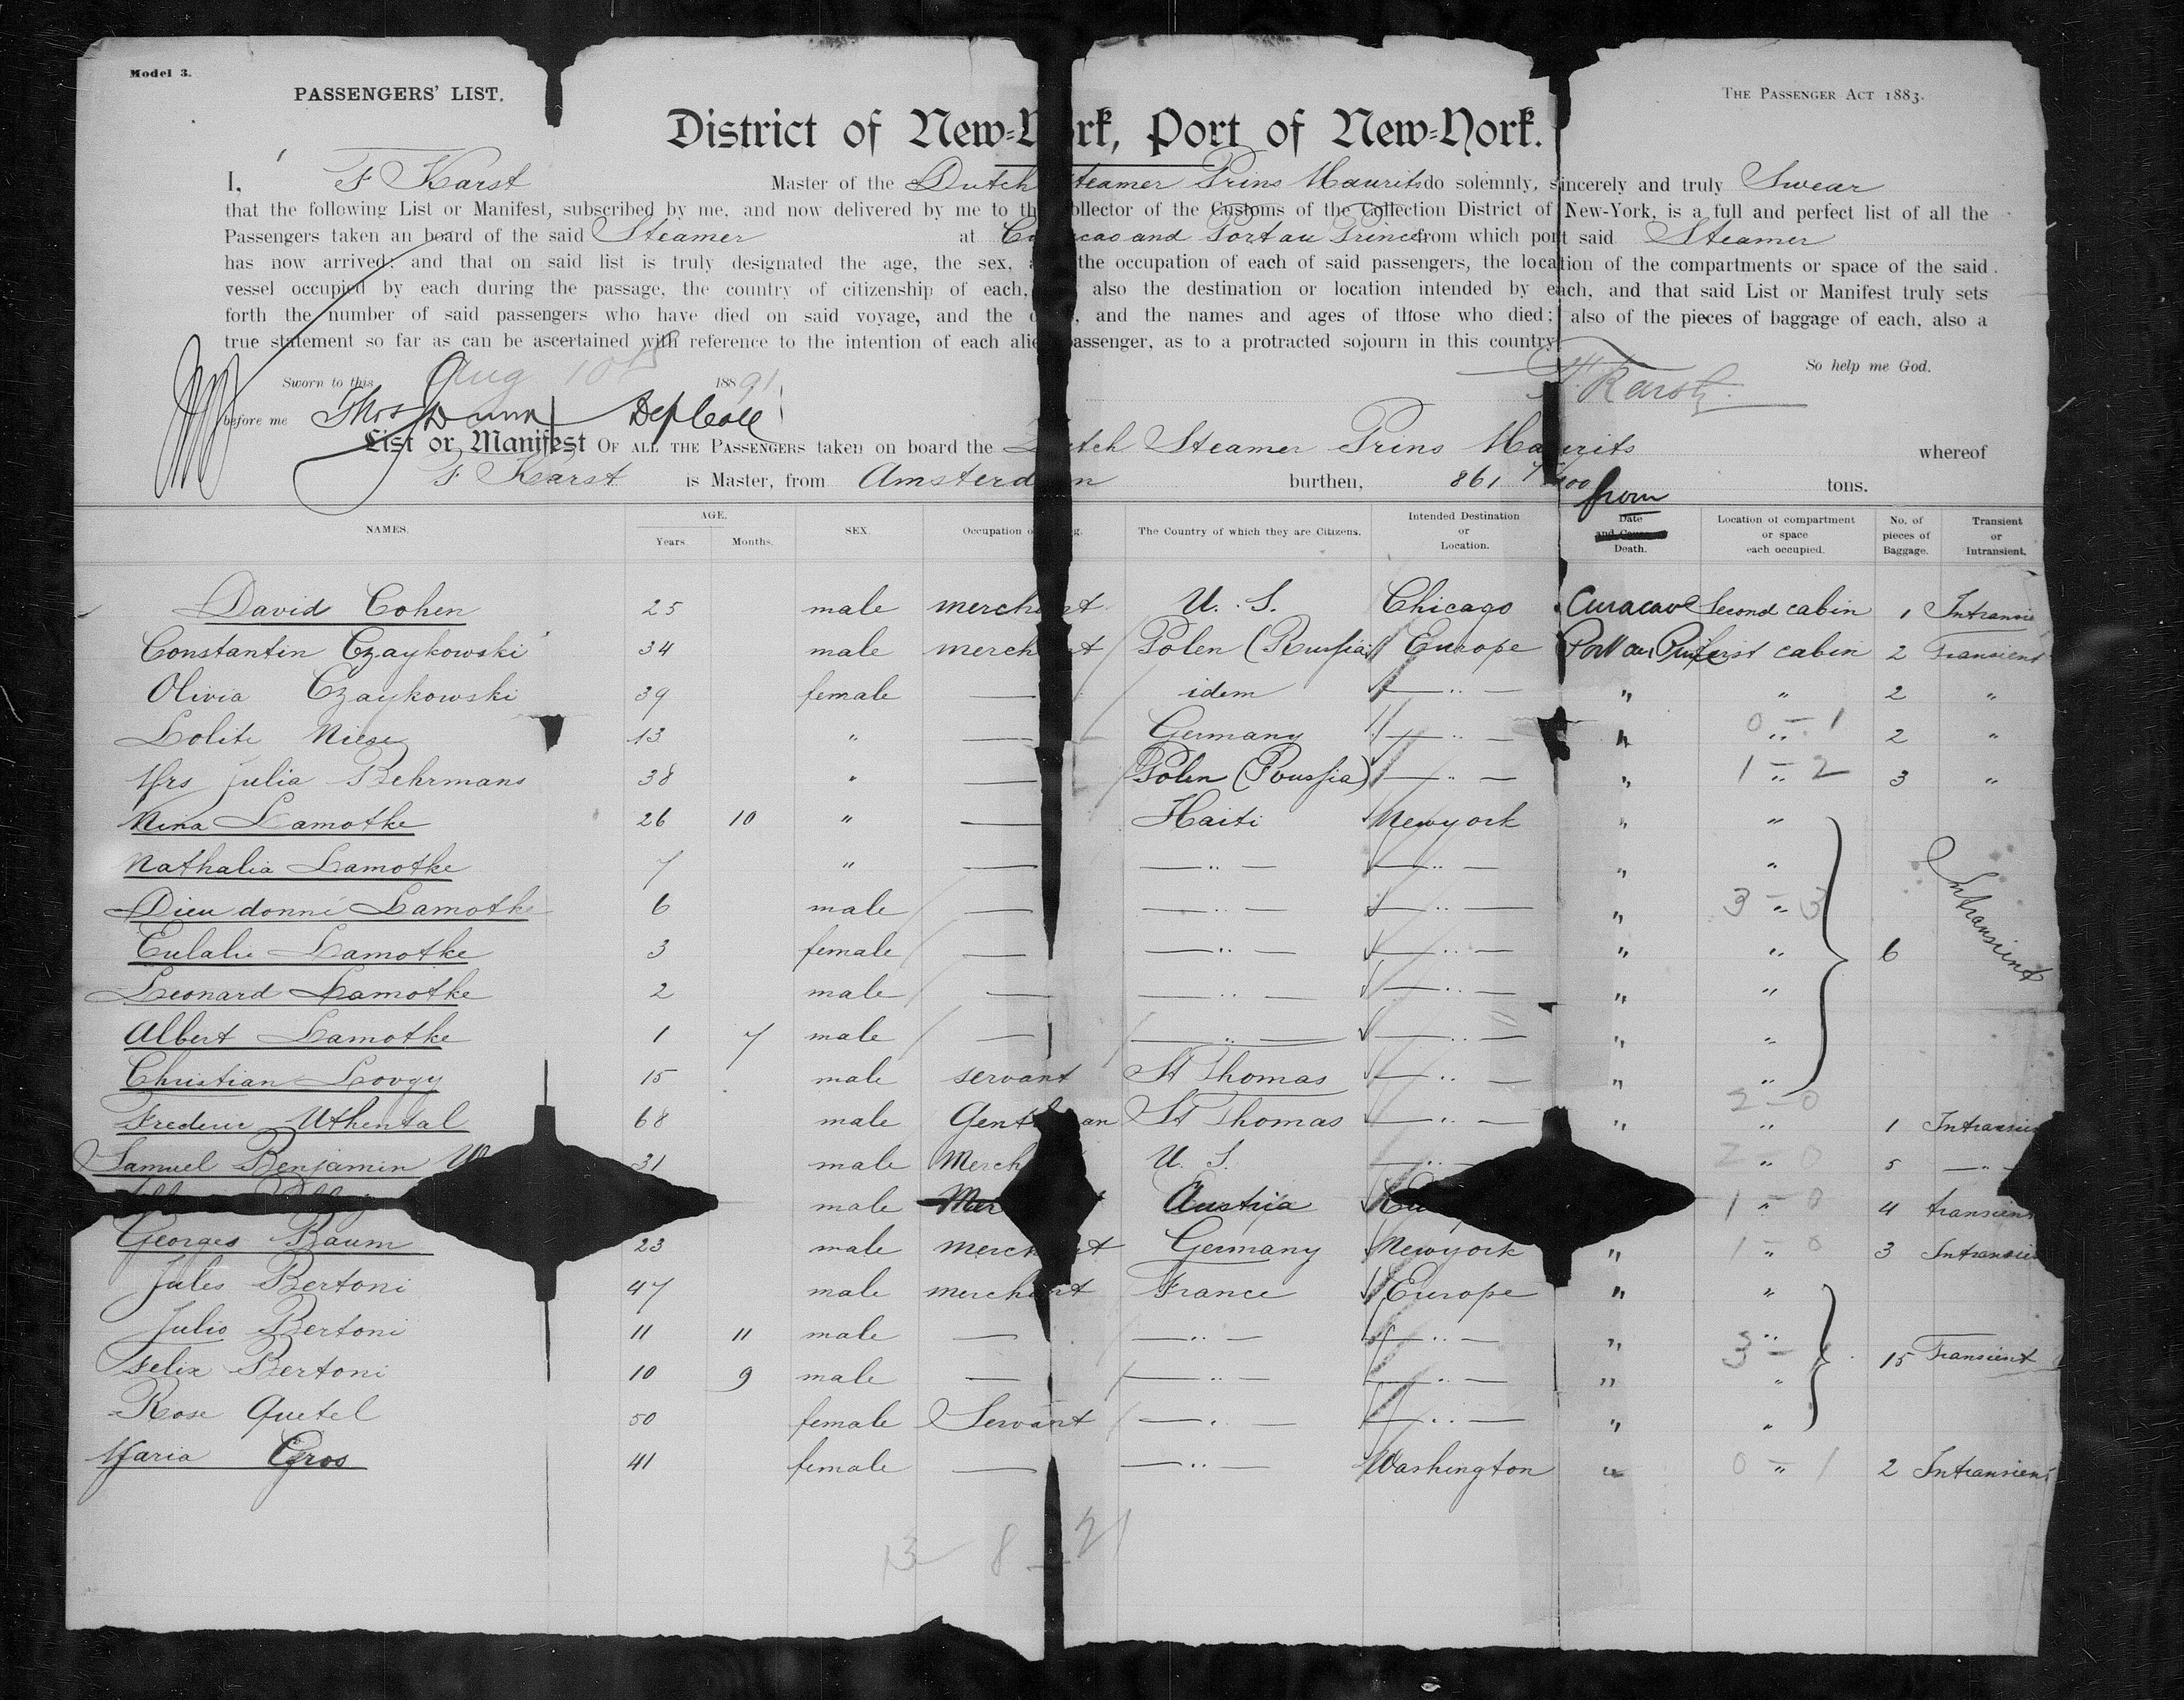 Model 3.
PASSENGERS' LIST.
THE PASSENGER ACT 1883.
District of New-York, Port of New-York.
I, F Karst Master of the Dutch Steamer Prins Maurits do solemnly, sincerely and truly Swear
that the following List or Manifest, subscribed by me, and now delivered by me to the Collector of the Customs of the Collection District of New-York, is a full and perfect list of all the
Passengers taken an board of the said Steamer at Curacao and Port au Prince from which port said Steamer
has now arrived; and that on said list is truly designated the age, the sex, the occupation of each of said passengers, the location of the compartments or space of the said
vessel occupied by each during the passage, the country of citizenship of each, also the destination or location intended by each, and that said List or Manifest truly sets
forth the number of said passengers who have died on said voyage, and the , and the names and ages of those who died; also of the pieces of baggage of each, also a
true statement so far as can be ascertained with reference to the intention of each alien passenger, as to a protracted sojourn in this country
So help me God.
Sworn to this Aug 10th 1891
F. Karst
before me Thos Dunn Dep Coll
List or Manifest OF ALL THE PASSENGERS taken on board the Dutch Steamer Prins Maurits whereof
F Karst is Master, from Amsterdam burthen, 861 /100 tons.
from
NAMES. AGE. Years Months. SEX. Occupation The Country of which they are Citizens. Intended Destination or Location. Date and Cause of Death. Location of compartment or space each occupied. No. of pieces of Baggage. Transient or Intransient.
David Cohen 25 male merchant U. S. Chicago Curacao Second cabin 1 Intransie
Constantin Czaykowski 34 male merchant Polen (Russia) Europe Port au Prince first cabin 2 Transient
Olivia Czaykowski 39 female — idem — " — " " 2 "
Lolite Niese 13 " — Germany — " — " 0 - 1 " 2 "
Mrs Julia Behrmans 38 " — Polen (Roussia) — " — " 1 - 2 " 3 "
Nina Lamothe 26 10 " — Haiti Newyork " "
Nathalia Lamothe 7 " — — " — — " — " "
Dieu donné Lamothe 6 male — — " — — " — " 3 - 3 "
Eulalie Lamothe 3 female — — " — — " — " " 6 Intransient
Leonard Lamothe 2 male — — " — — " — " "
Albert Lamothe 1 7 male — — " — — " — " "
Christian Lovgy 15 male servant St Thomas — " — " "
Frederic Uthental 68 male Gentleman St Thomas — " — " 2 - 0 " 1 Intransien
Samuel Benjamin 31 male Merch U. S. — " 2 - 0 " 5 — " —
male Mer Austria Eu 1 - 0 " 4 transient
Georges Baum 23 male merchant Germany Newyork " 1 - 0 " 3 Intransien
Jules Bertoni 47 male merchant France Europe " "
Julio Bertoni 11 11 male — — " — — " — " "
Felix Bertoni 10 9 male — — " — — " — " 3 - 1 " 15 Transient
Rose Quetel 50 female Servant — " — — " — " "
Maria Gros 41 female — — " — Washington " 0 - 1 " 2 Intransient
13 8 - 21